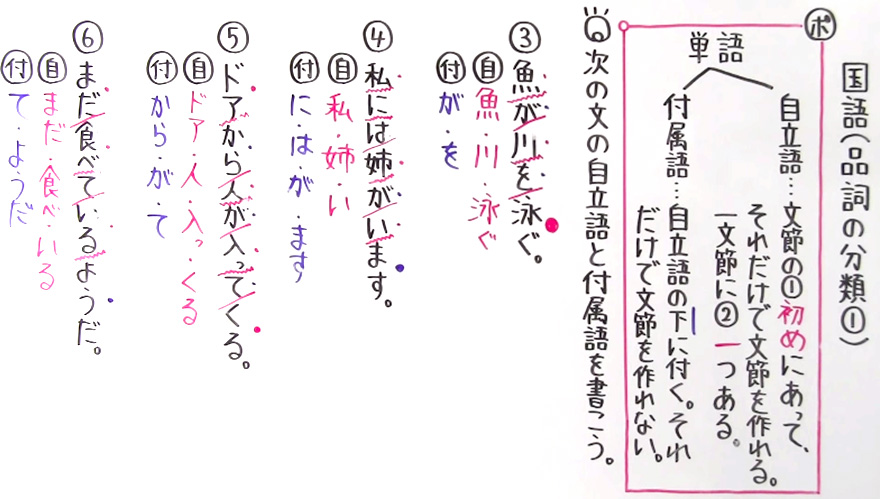 国語（品詞の分類①）
ポ
単語
自立語…文節の①初めにあって、
それだけで文節を作れる。
一文節に②一つある。
付属語…自立語の下に付く。それ
だけで文節を作れない。
次の文の自立語と付属語を書こう。
③魚が川を泳ぐ。
自 魚・川・泳ぐ
付 が・を
④私には姉がいます。
自 私・姉・い
付 に・は・が・ます
⑤ドアから人が入ってくる。
自 ドア・人・入っ・くる
付 から・が・て
⑥まだ食べているようだ。
自 まだ・食べ・いる
付 て・ようだ